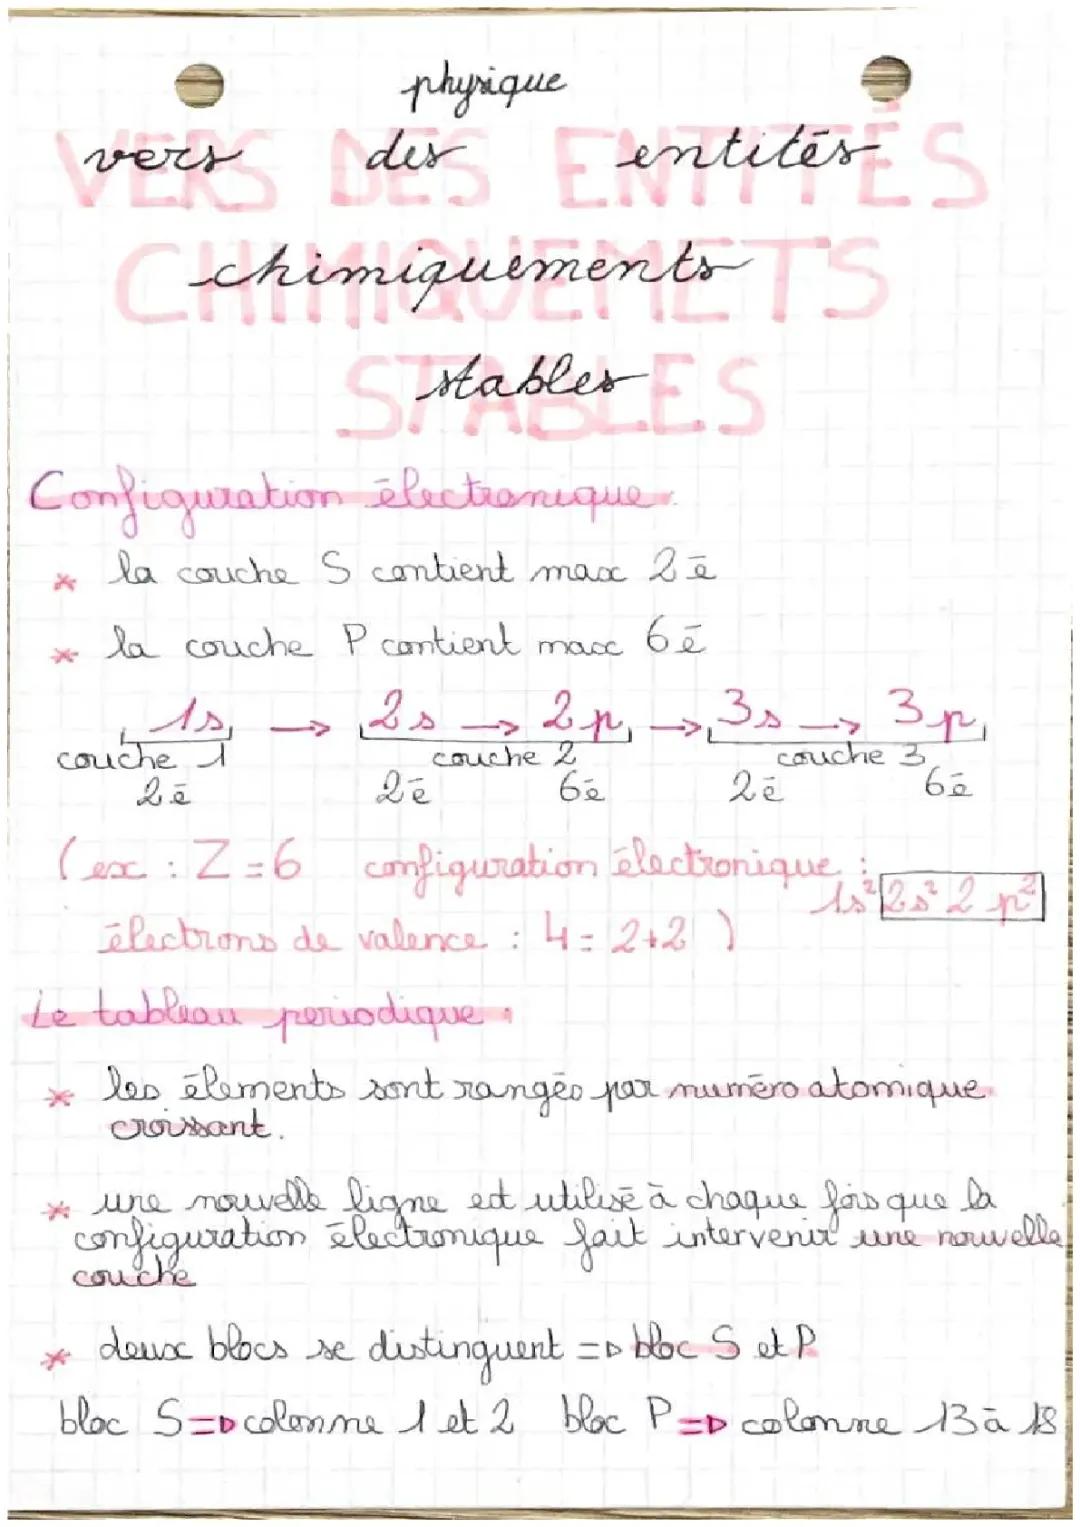 physique
vers des entités
VERS DES ENTITÉS
chimiquements
CHIMIQUEMETS
stables
STABLES
Configuration électronique :
* la couche S contient max 2ē
* la couche P contient max 6ē
1s → 2s → 2p → 3s → 3p
couche 1 couche 2 couche 3
2ē 2ē 6ē 2ē 6ē
(ex : Z = 6 configuration électronique :
1s² 2s² 2p²
électrons de valence : 4 = 2+2 )
Le tableau periodique :
* les élements sont rangés par numéro atomique
croissant.
* une nouvelle ligne est utilisé à chaque fois que la
configuration électronique fait intervenir une nouvelle
couche
* deux blocs se distinguent => bloc S et P
bloc S => colonne 1 et 2 bloc P => colonne 13 à 18